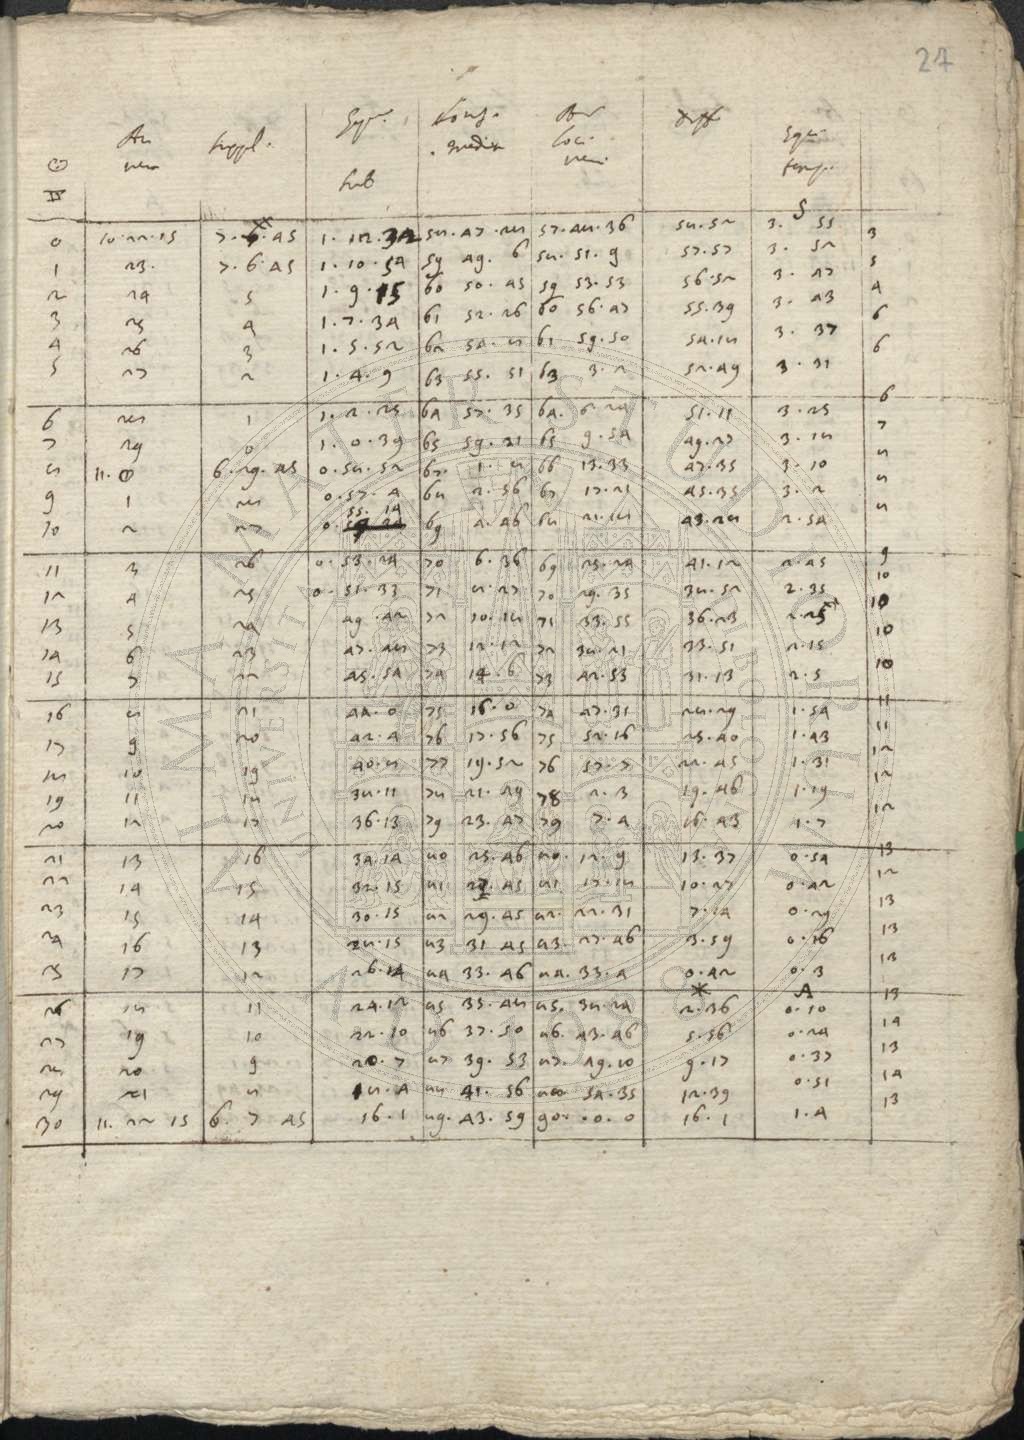 27
☉ An vera Suppl. Equ. Long. AR Diff Equ.
media loci temp.
♊ sub veri S
0 10.22.15 7.7.45 1.12.34 58.47.28 57.48.36 58.52 3.55
3
1 23. 7.6.45 1.10.54 59 49.6 58.51.9 57.57 3.52
5
2 24 5 1.9.15 60 50.45 59 53.53 56.52 3.47
4
3 25 4 1.7.34 61 52.26 60 56.47 55.39 3.43
6
4 26 3 1.5.52 62 54.8 61 59.50 54.18 3.37
6
5 27 2 1.4.9 63 55.51 63 3.2 52.49 3.31
6
6 28 1 1.2.25 64 57.35 64.6.24 51.11 3.25
7
7 29 0 1.0.39 65 59.21 65 9.54 49.27 3.18
8
8 11.0 6.29.45 0.58.52 67.1.8 66 13.33 47.35 3.10
8
9 1 28 0.57.4 68 2.56 67 17.21 45.35 3.2
8
10 2 27 0.55.14 69 4.46 68 21.18 43.28 2.54
9
11 3 26 0.53.24 70 6.36 69 25.24 41.12 2.45
10
12 4 25 0.51.33 71 8.27 70 29.35 38.52 2.35
10
13 5 24 49.42 72 10.18 71 33.55 36.23 2.25
10
14 6 23 47.48 73 12.12 72 38.21 33.51 2.15
10
15 7 22 45.54 74 14.6 73 42.53 31.13 2.5
11
16 8 21 44.0 75 16.0 74 47.31 28.29 1.54
11
17 9 20 42.4 76 17.56 75 52.16 25.40 1.43
12
18 10 19 40.8 77 19.52 76 57.7 22.45 1.31
12
19 11 18 38.11 78 21.49 78 2.3 19.46 1.19
12
20 12 17 36.13 79 23.47 79 7.4 16.43 1.7
13
21 13 16 34.14 80 25.46 80.12.9 13.37 0.54
12
22 14 15 32.15 81 27.45 81 17.18 10.27 0.42
13
23 15 14 30.15 82 29.45 82.22.31 7.14 0.29
13
24 16 13 28.15 83 31 45 83.27.46 3.59 0.16
13
25 17 12 26.14 84 33.46 84.33.4 0.42 0.3
* A
13
26 18 11 24.12 85 35.48 85.38.24 2.36 0.10
14
27 19 10 22.10 86 37.50 86.43.46 5.56 0.24
13
28 20 9 20.7 87 39.53 87.49.10 9.17 0.37
14
29 21 8 18.4 88 41.56 88 54.35 12.39 0.51
13
30 11.22 15 6.7 45 16.1 89.43.59 90.0.0 16.1 1.4